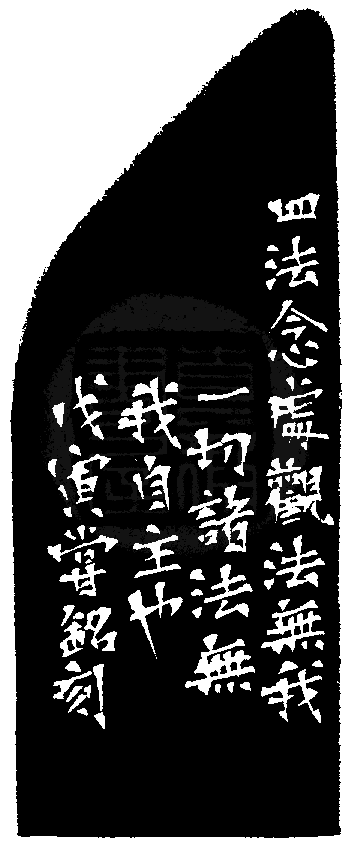 四法念虚觀法無我
一切諸法無
我自主也
戊寅甞銘刻